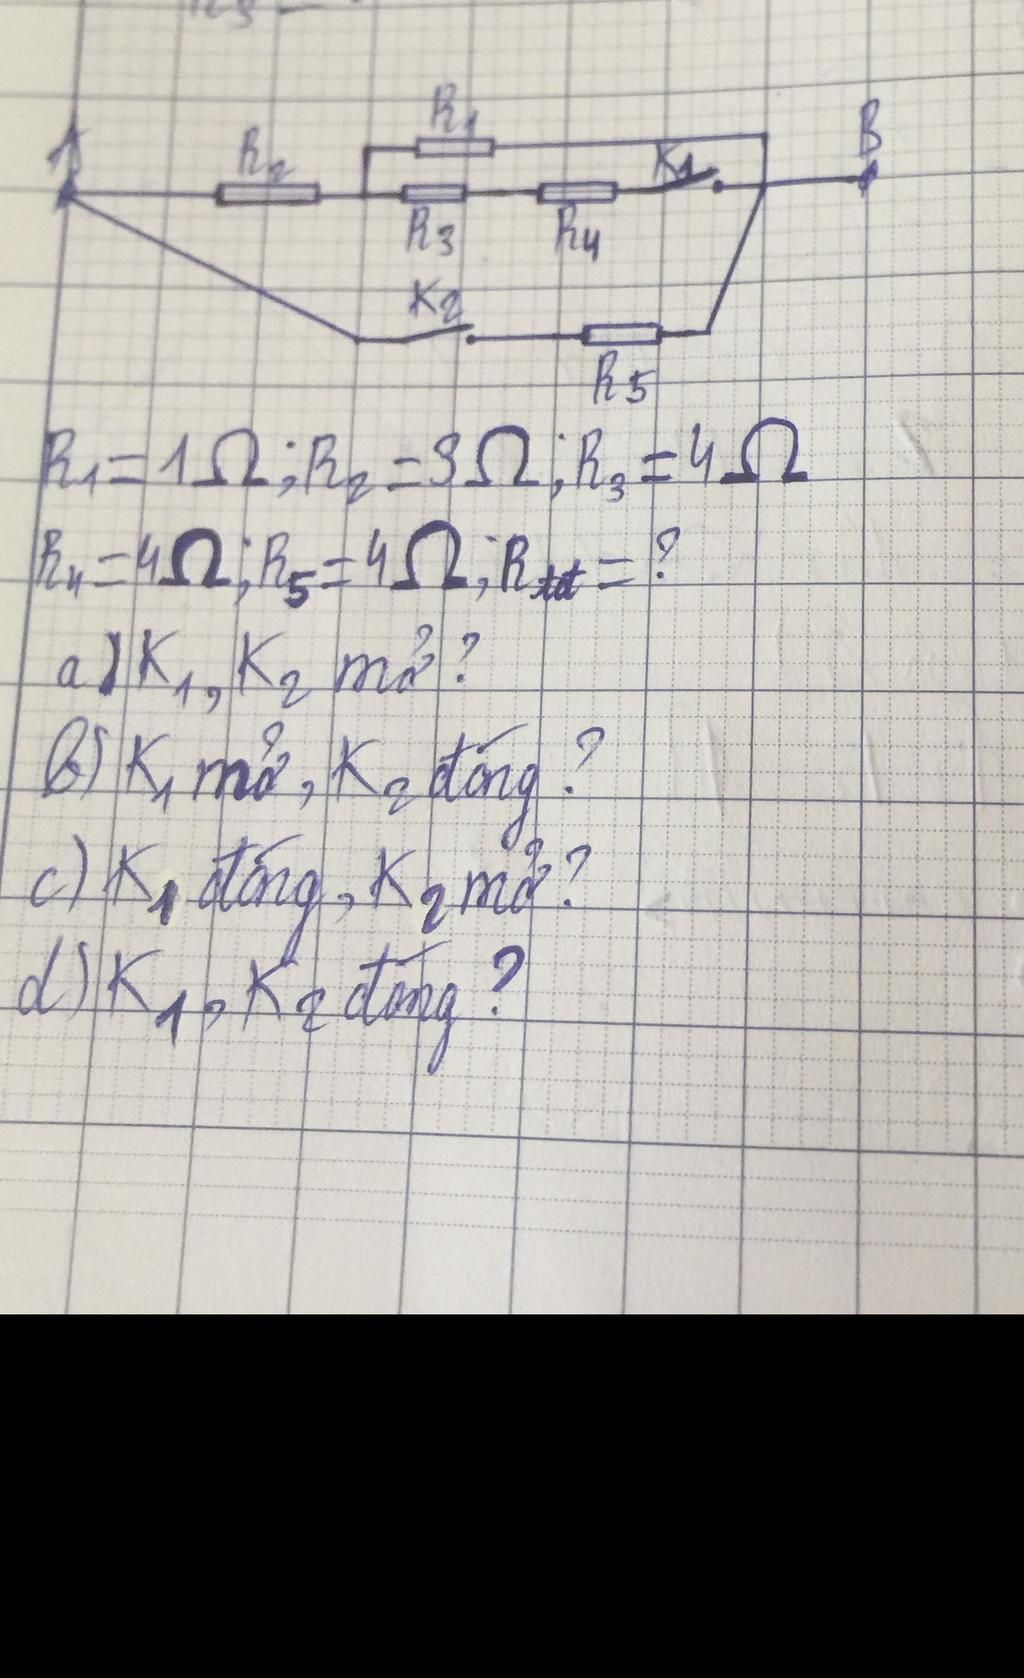 A
R₂
R₁
K₁
B
R₃
R₄
K₂
R₅
R₁ = 1Ω; R₂ = 3Ω; R₃ = 4Ω
R₄ = 4Ω; R₅ = 4Ω; Rtđ = ?
a) K₁, K₂ mở?
b) K₁ mở, K₂ đóng?
c) K₁ đóng, K₂ mở?
d) K₁, K₂ đóng?